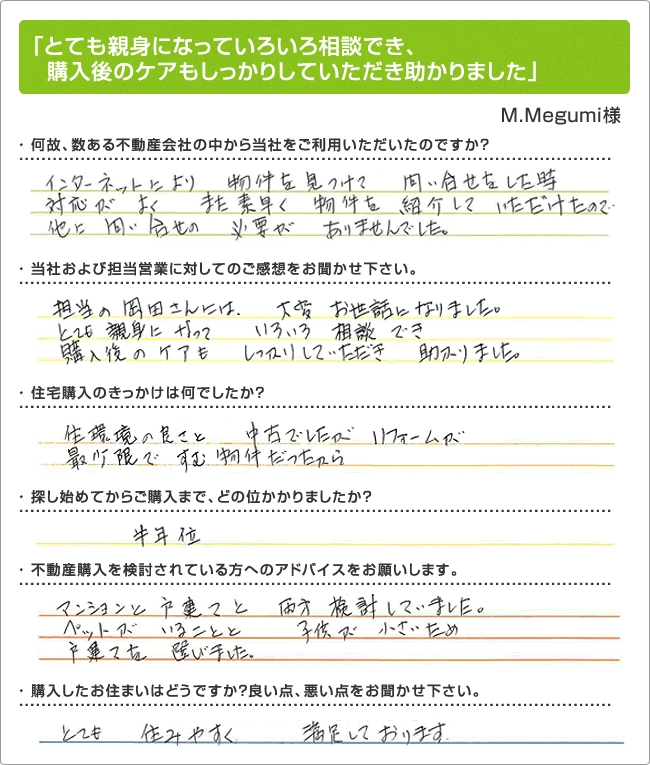 「とても親身になっていろいろ相談でき、
購入後のケアもしっかりしていただき助かりました」
M.Megumi様
・何故、数ある不動産会社の中から当社をご利用いただいたのですか?
インターネットにより 物件を見つけて 問い合せをした時
対応が よく また素早く 物件を 紹介して いただけたので
他に 問い合せの 必要が ありませんでした。
・当社および担当営業に対してのご感想をお聞かせ下さい。
担当の岡田さんには、 大変 お世話になりました。
とても 親身に なって いろいろ 相談 でき
購入後の ケアも しっかりしていただき 助かりました。
・住宅購入のきっかけは何でしたか?
住環境の良さと 中古でしたが リフォームが
最少限で すむ 物件だったから
・探し始めてからご購入まで、どの位かかりましたか?
半年位
・不動産購入を検討されている方へのアドバイスをお願いします。
マンションと 戸建てと 両方 検討していました。
ペットが いることと 子供が 小さいため
戸建てを 選びました。
・購入したお住まいはどうですか?良い点、悪い点をお聞かせ下さい。
とても 住みやすく 満足しております。